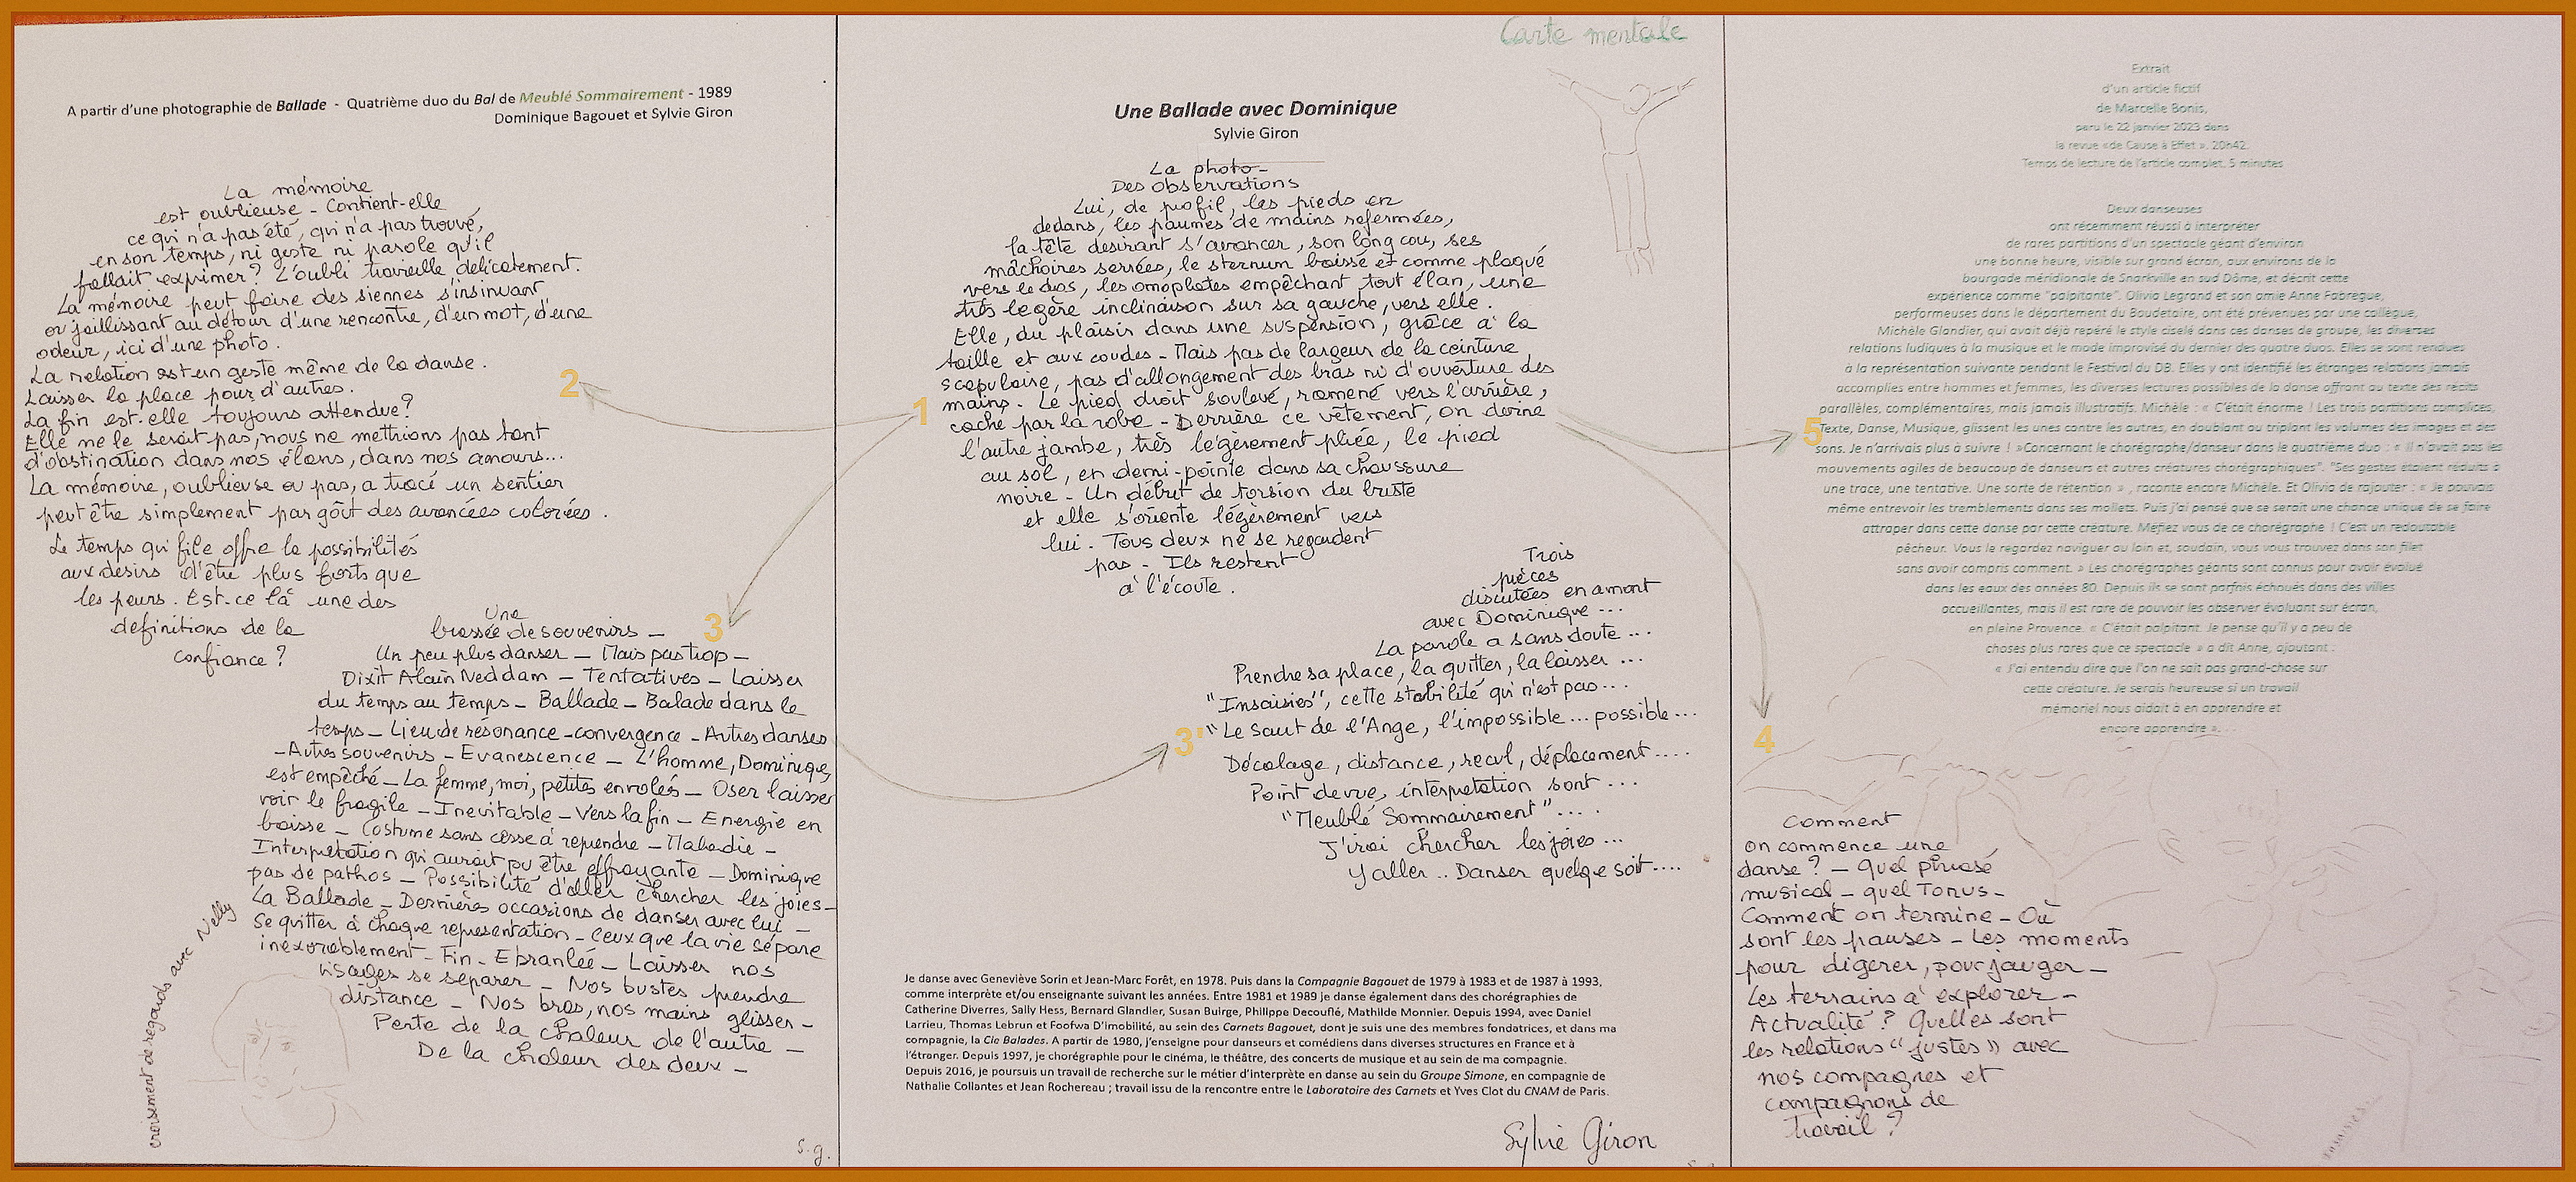 Carte mentale
A partir d'une photographie de Ballade - Quatrième duo du Bal de Meublé Sommairement - 1989
Dominique Bagouet et Sylvie Giron
La mémoire
est oublieuse - Contient-elle
ce qui n'a pas été, qui n'a pas trouvé,
en son temps, ni geste ni parole qu'il
fallait exprimer ? L'oubli travaille délicatement.
La mémoire peut faire des siennes s'insinuant
ou jaillissant au détour d'une rencontre, d'un mot, d'une
odeur, ici d'une photo.
La relation est un geste même de la danse.
Laisser la place pour d'autres.
La fin est-elle toujours attendue ?
Elle ne le serait pas, nous ne mettrions pas tant
d'obstination dans nos élans, dans nos amours...
La mémoire, oublieuse ou pas, a tracé un sentier
peut être simplement par goût des avancées colorées.
Le temps qui file offre la possibilités
aux désirs d'être plus forts que
les peurs. Est-ce là une des
définitions de la
confiance ?
2
3
Une
brassée de souvenirs -
Un peu plus danser - Mais pas trop -
Dixit Alain Neddam - Tentatives - Laisser
du temps au temps - Ballade - Balade dans le
temps - Lieu de résonance - convergence - Autres danses
- Autres souvenirs - Evanescence - L'homme, Dominique,
est empêché - La femme, moi, petites envolés - Oser laisser
voir le fragile - Inévitable - Vers la fin - Energie en
baisse - Costume sans cesse à reprendre - Maladie -
Interprétation qui aurait pu être effrayante - Dominique
pas de pathos - Possibilité d'aller chercher les joies -
La Ballade - Dernières occasions de danser avec lui -
Se quitter à chaque représentation - Ceux que la vie sépare
inexorablement - Fin - Ebranlée - Laisser nos
visages se séparer - Nos bustes prendre
distance - Nos bras, nos mains glisser -
Perte de la chaleur de l'autre -
De la chaleur des deux -
croisement de regards avec Nelly
s.g.
Une Ballade avec Dominique
Sylvie Giron
La photo -
Des observations
Lui, de profil, les pieds en
dedans, les paumes de mains refermées,
la tête désirant s'avancer, son long cou, ses
mâchoires serrées, le sternum baissé et comme plaqué
vers le dos, les omoplates empêchant tout élan, une
très légère inclinaison sur sa gauche, vers elle.
Elle, du plaisir dans une suspension, grâce à la
taille et aux coudes - Mais pas de largeur de la ceinture
scapulaire, pas d'allongement des bras ni d'ouverture des
mains. Le pied droit soulevé, ramené vers l'arrière,
caché par la robe - Derrière ce vêtement, on devine
l'autre jambe, très légèrement pliée, le pied
au sol, en demi-pointe dans sa chaussure
noire - Un début de torsion du buste
et elle s'oriente légèrement vers
lui. Tous deux ne se regardent
pas - Ils restent
à l'écoute.
1
3'
Trois
pièces
discutées en amont
avec Dominique ...
La parole a sans doute ...
Prendre sa place, la quitter, la laisser ...
"Insaisies", cette stabilité qui n'est pas ...
"Le Saut de l'Ange, l'impossible ... possible ...
Décalage, distance, recul, déplacement ....
Point de vue, interprétation sont ...
"Meublé Sommairement" ... .
J'irai chercher les joies ...
Y aller .. Danser quelqe soit ....
Je danse avec Geneviève Sorin et Jean-Marc Forêt, en 1978. Puis dans la Compagnie Bagouet de 1979 à 1983 et de 1987 à 1993,
comme interprète et/ou enseignante suivant les années. Entre 1981 et 1989 je danse également dans des chorégraphies de
Catherine Diverres, Sally Hess, Bernard Glandier, Susan Buirge, Philippe Decouflé, Mathilde Monnier. Depuis 1994, avec Daniel
Larrieu, Thomas Lebrun et Foofwa D'imobilité, au sein des Carnets Bagouet, dont je suis une des membres fondatrices, et dans ma
compagnie, la Cie Balades. A partir de 1980, j'enseigne pour danseurs et comédiens dans diverses structures en France et à
l'étranger. Depuis 1997, je chorégraphie pour le cinéma, le théâtre, des concerts de musique et au sein de ma compagnie.
Depuis 2016, je poursuis un travail de recherche sur le métier d'interprète en danse au sein du Groupe Simone, en compagnie de
Nathalie Collantes et Jean Rochereau ; travail issu de la rencontre entre le Laboratoire des Carnets et Yves Clot du CNAM de Paris.
Sylvie Giron
Extrait
d'un article fictif
de Marcelle Bonis,
paru le 22 janvier 2023 dans
la revue «de Cause à Effet ». 20h42.
Temps de lecture de l'article complet, 5 minutes
Deux danseuses
ont récemment réussi à interpréter
de rares partitions d'un spectacle géant d'environ
une bonne heure, visible sur grand écran, aux environs de la
bourgade méridionale de Snarkville en sud Dôme, et décrit cette
expérience comme "palpitante". Olivia Legrand et son amie Anne Fabregue,
performeuses dans le département du Baudetaire, ont été prévenues par une collègue,
Michèle Glandier, qui avait déjà repéré le style ciselé dans ces danses de groupe, les diverses
relations ludiques à la musique et le mode improvisé du dernier des quatre duos. Elles se sont rendues
à la représentation suivante pendant le Festival du DB. Elles y ont identifié les étranges relations jamais
accomplies entre hommes et femmes, les diverses lectures possibles de la danse offrant au texte des récits
parallèles, complémentaires, mais jamais illustratifs. Michèle : « C'était énorme ! Les trois partitions complices,
5
Texte, Danse, Musique, glissent les unes contre les autres, en doublant ou triplant les volumes des images et des
sons. Je n'arrivais plus à suivre ! »Concernant le chorégraphe/danseur dans le quatrième duo : « Il n'avait pas les
mouvements agiles de beaucoup de danseurs et autres créatures chorégraphiques". "Ses gestes étaient réduits à
une trace, une tentative. Une sorte de rétention » , raconte encore Michèle. Et Olivia de rajouter : « Je pouvais
même entrevoir les tremblements dans ses mollets. Puis j'ai pensé que se serait une chance unique de se faire
attraper dans cette danse par cette créature. Méfiez vous de ce chorégraphe ! C'est un redoutable
pêcheur. Vous le regardez naviguer au loin et, soudain, vous vous trouvez dans son filet
sans avoir compris comment. » Les chorégraphes géants sont connus pour avoir évolué
dans les eaux des années 80. Depuis ils se sont parfois échoués dans des villes
accueillantes, mais il est rare de pouvoir les observer évoluant sur écran,
en pleine Provence. « C'était palpitant. Je pense qu'il y a peu de
choses plus rares que ce spectacle » a dit Anne, ajoutant :
« J'ai entendu dire que l'on ne sait pas grand-chose sur
cette créature. Je serais heureuse si un travail
mémoriel nous aidait à en apprendre et
encore apprendre ».
4
Comment
on commence une
danse ? - Quel phrasé
musical - quel Tonus -
Comment on termine - Où
sont les pauses - Les moments
pour digérer, pour jauger -
Les terrains à explorer -
Actualité ? Quelles sont
les relations "justes" avec
nos compagnes et
compagnons de
travail ?